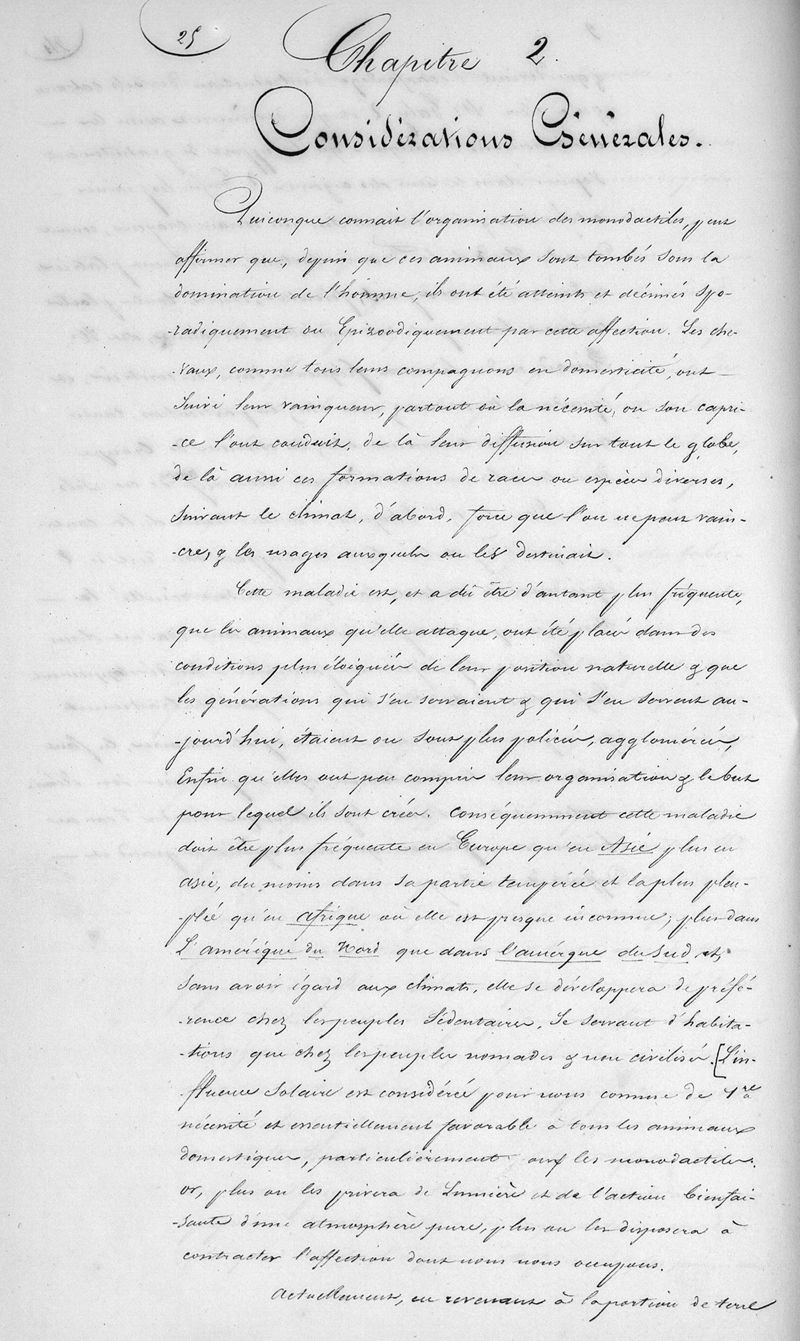 25
Chapitre 2.
Considérations Générales.
Quiconque connait l'organisation des monodactiles, peut
affirmer que, depuis que ces animaux sont tombés sous la
domination de l'homme, ils ont été atteints et décimés spo-
-radiquement ou Epizoodiquement par cette affection. Les che-
-vaux, comme tous leurs compagnons en domesticité, ont
suivi leur vainqueur, partout où la nécessité, ou son capri-
-ce l'ont conduit, de là leur diffusion sur tout le globe,
de là aussi ces formations de races ou espèces diverses,
suivant le climat, d'abord, force que l'on ne peut vain-
-cre, & les usages auxquels on les destinait.
Cette maladie est, et a dû être d'autant plus fréquente,
que les animaux qu'elle attaque, ont été placés dans des
conditions plus éloignées de leur position naturelle & que
les générations qui s'en servaient & qui s'en servent au-
-jourd'hui, étaient ou sont plus policées, agglomérées,
Enfin qu'elles ont peu compris leur organisation & le but
pour lequel ils sont créés. Conséquemment cette maladie
doit être plus fréquente en Europe qu'en Asie, plus en
asie, du moins dans sa partie tempérée et la plus peu-
-plée qu'en afrique où elle est presque inconnue; plus dans
L'amérique du Nord que dans l'amérique du Sud et,
sans avoir égard aux climats, elle se développera de préfé-
-rence chez les peuples Sédentaires, se servant d'habita-
-tions que chez les peuples nomades & non civilisés. [L'in-
-fluence Solaire est considérée pour nous comme de 1re
nécessité et essentiellement favorable à tous les animaux
domestiques, particulièrement aux les monodactiles.
or, plus on les privera de Lumière et de l'action bienfai-
-sante d'une atmosphère pure, plus on les disposera à
contracter l'affection dont nous nous occupons.
Actuellement, en revenant à la portion de terre